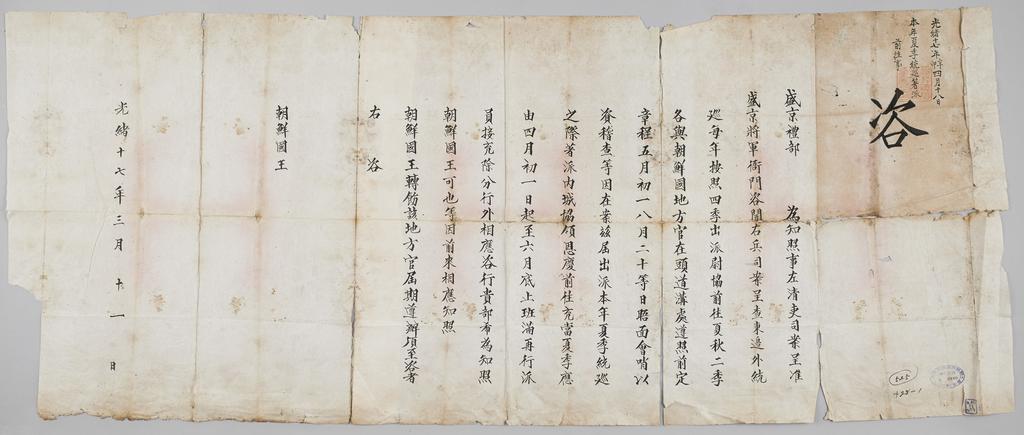 光緒十七年辛卯四月十八日
本年夏季統巡著派
前往事
咨
盛京禮部 為知照事左清吏司案呈准
盛京將軍衙門咨開右兵司案呈查東邊外統
巡每年按照四季出派尉協前往夏秋二季
各與朝鮮國地方官在頭道溝處遵照前定
章程五月初一八月二十等日晤面會哨以
資稽查等因在案茲屆出派本年夏季統巡
之際著派內城協領恩慶前往充當夏季應
由四月初一日起至六月底止班滿再行派
員接充除分行外相應咨行貴部希為知照
朝鮮國王可也等因前來相應知照
朝鮮國王轉飭該地方官屆期遵辦須至咨者
右 咨
朝鮮國王
光緒十七年三月 十一 日
525
428-1